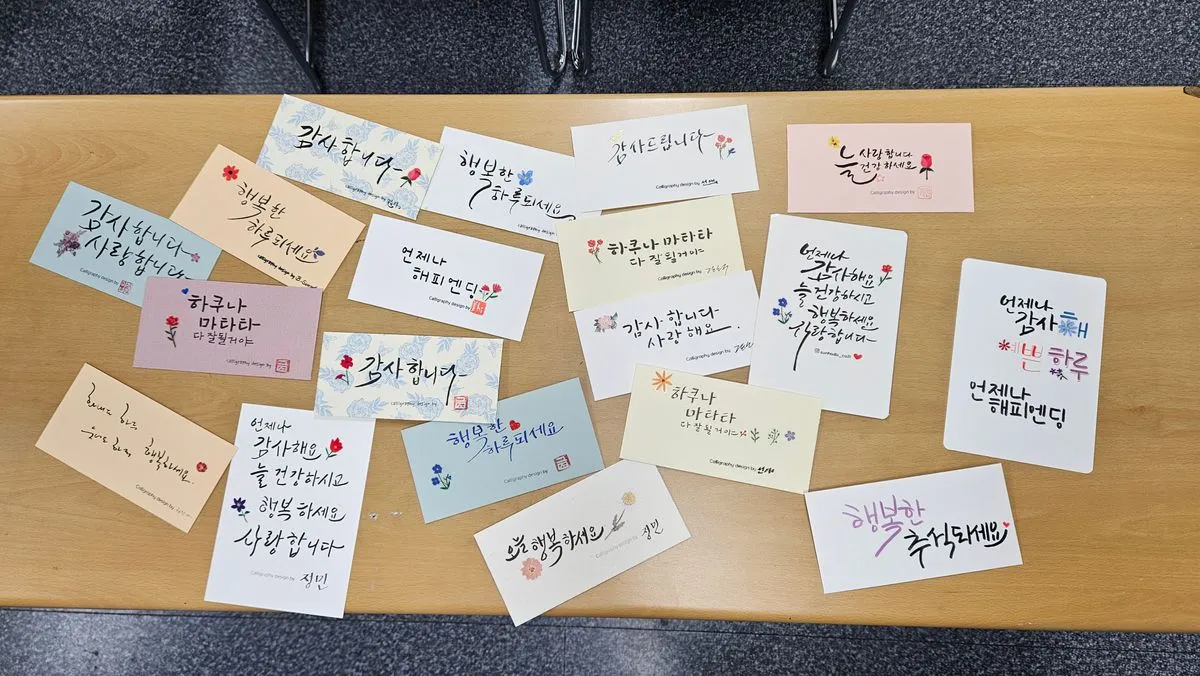 감사합니다
행복한
하루되세요
Calligraphy design by
감사드립니다
Calligraphy design by
늘 사랑합니다
건강하세요
Calligraphy design by
감사합니다
사랑합니다
Calligraphy design by
행복한
하루되세요
Calligraphy design by
언제나
해피엔딩
Calligraphy design by
하쿠나 마타타
다 잘 될거야
Calligraphy design by
언제나
감사해요
늘 건강하시고
행복하세요
사랑합니다
언제나
감사해
예쁜 하루
언제나
해피엔딩
하쿠나
마타타
다 잘될거야
Calligraphy design by
감사합니다
사랑해요
Calligraphy design by
감사합니다
Calligraphy design by
하쿠나
마타타
다 잘 될거야
Calligraphy design by
하루
행복하세요
Calligraphy design by
언제나
감사해요
늘 건강하시고
행복하세요
사랑합니다
Calligraphy design by 정민
행복한
하루되세요
Calligraphy design by
오늘 행복하세요
Calligraphy design by 정민
행복한
추석되세요